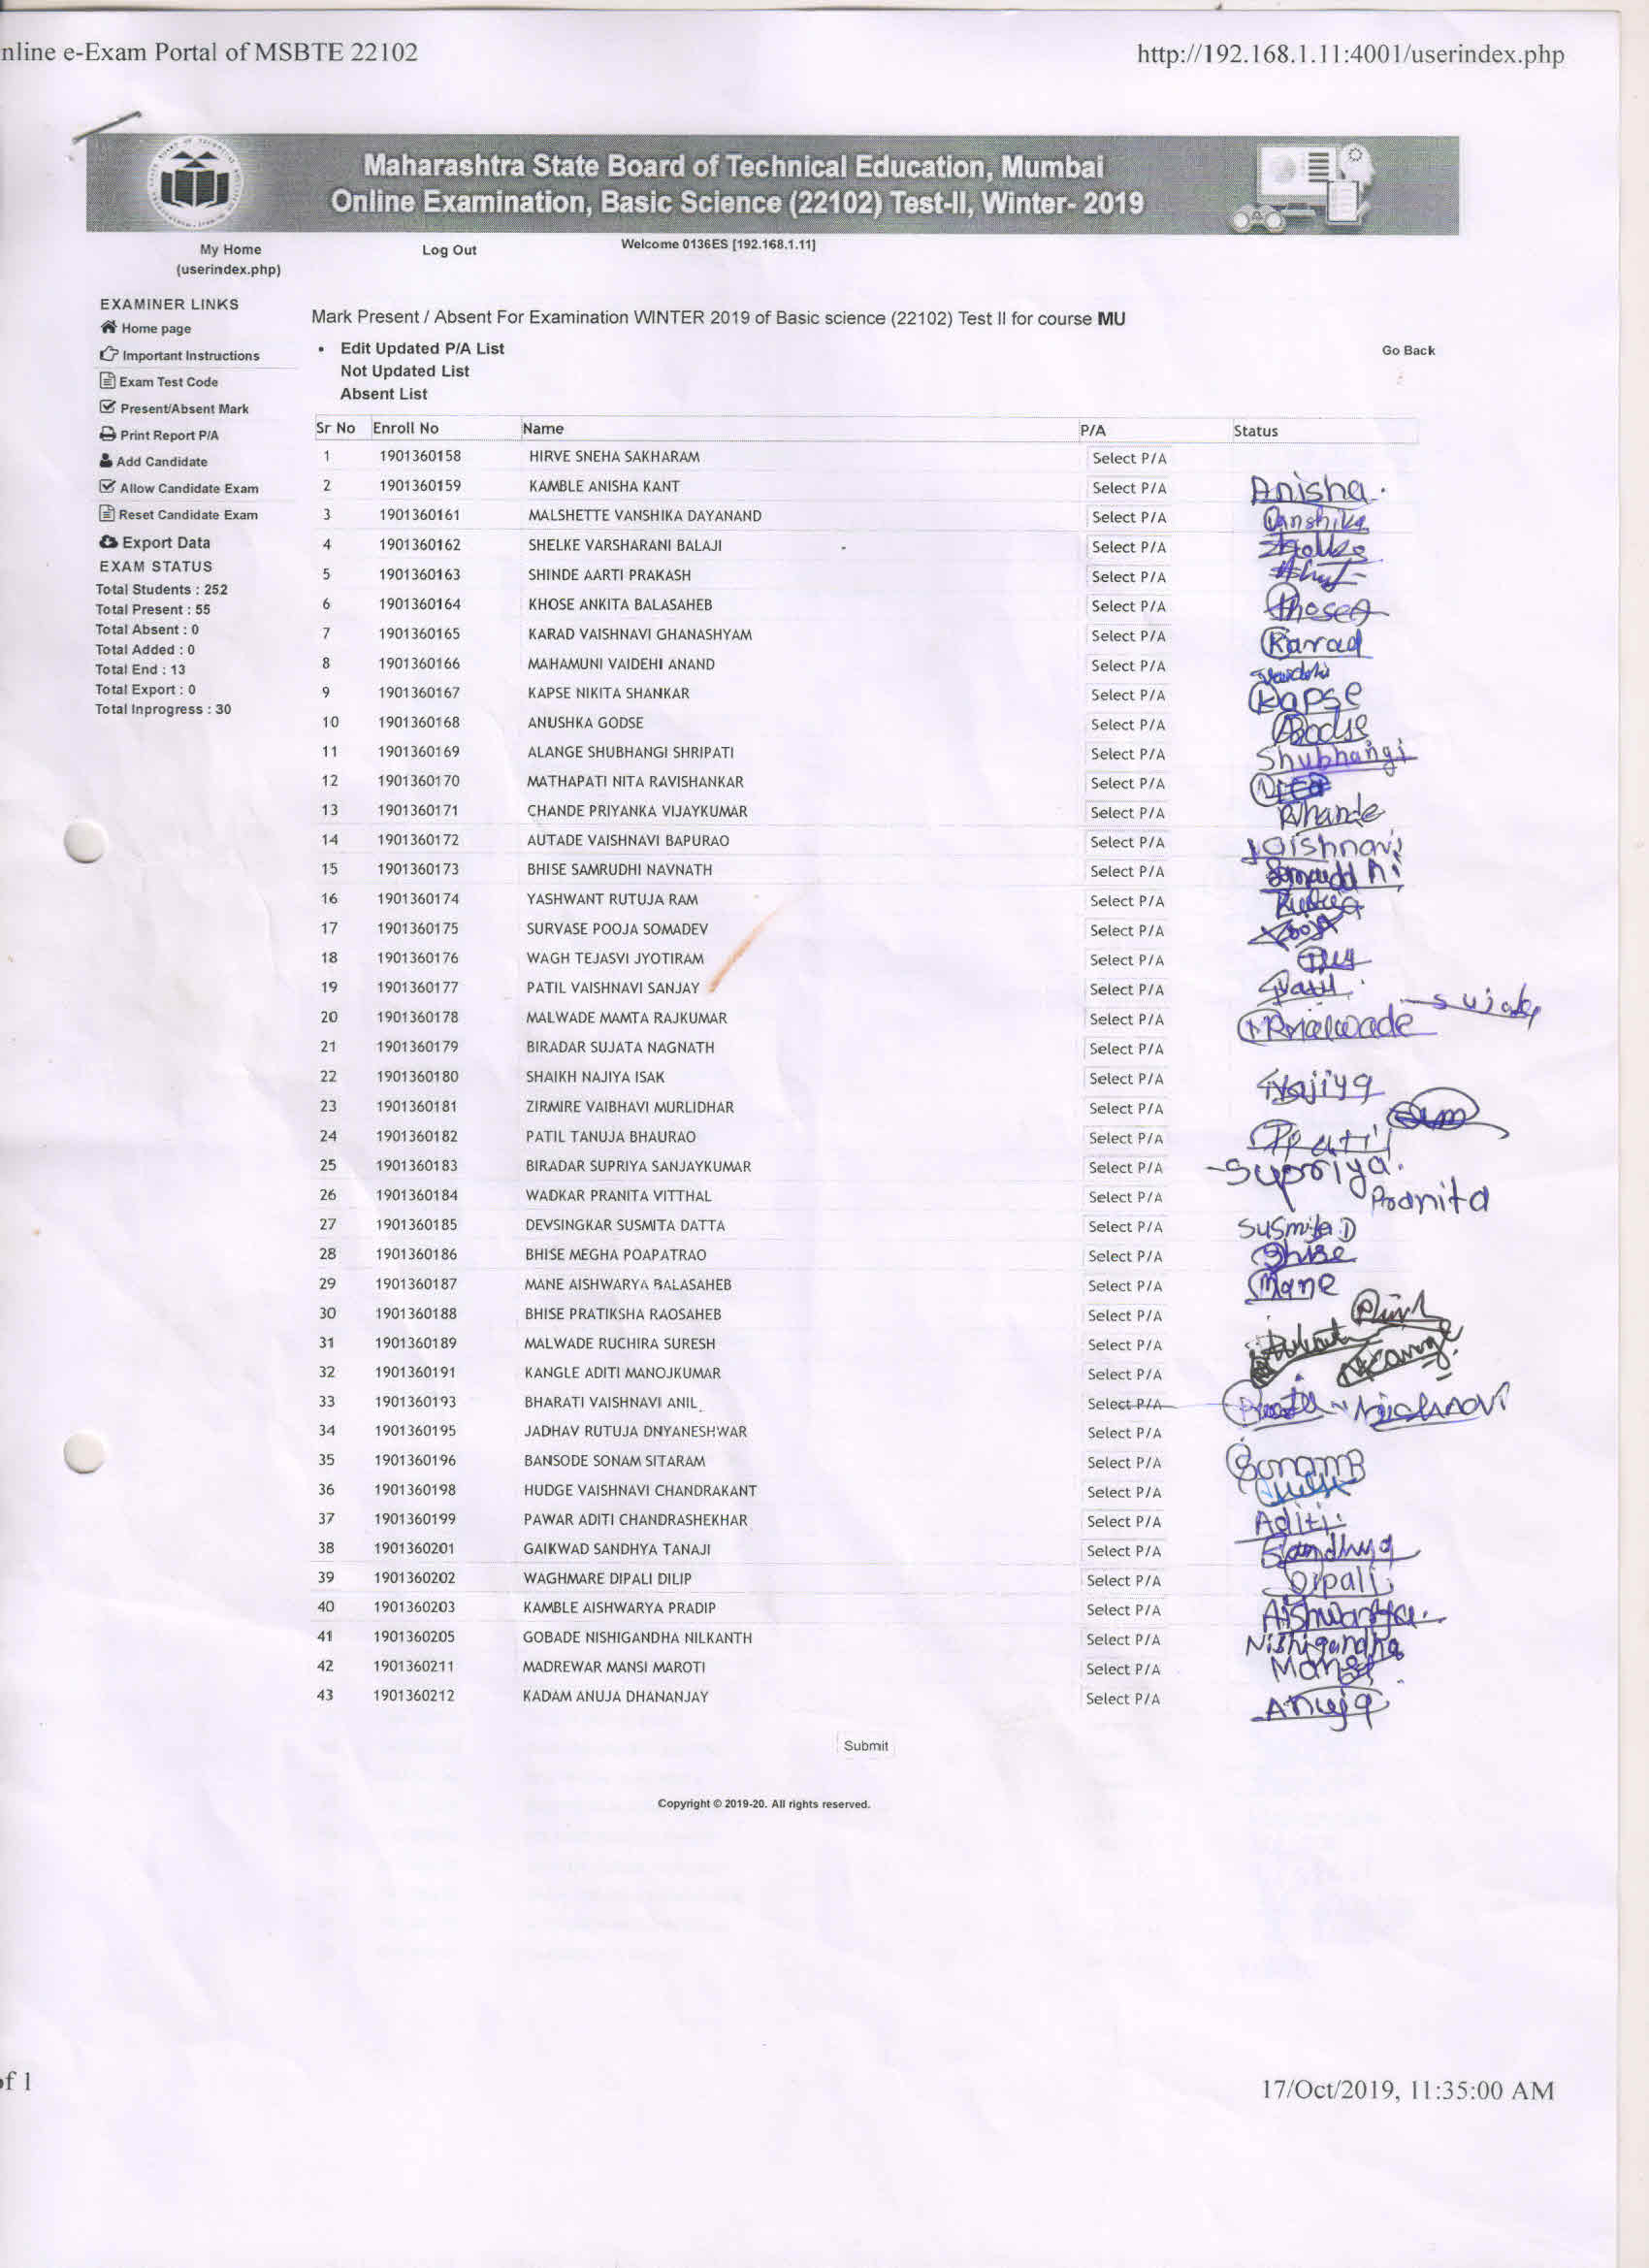 nline e-Exam Portal of MSBTE 22102 http://192.168.1.11:4001/userindex.php
Maharashtra State Board of Technical Education, Mumbai
Online Examination, Basic Science (22102) Test-II, Winter- 2019
My Home Log Out Welcome 0136ES [192.168.1.11]
(userindex.php)
EXAMINER LINKS
Home page
Important Instructions
Exam Test Code
Present/Absent Mark
Print Report P/A
Add Candidate
Allow Candidate Exam
Reset Candidate Exam
Export Data
EXAM STATUS
Total Students : 252
Total Present : 55
Total Absent : 0
Total Added : 0
Total End : 13
Total Export : 0
Total Inprogress : 30
Mark Present / Absent For Examination WINTER 2019 of Basic science (22102) Test II for course MU
• Edit Updated P/A List Go Back
Not Updated List
Absent List
Sr No Enroll No Name P/A Status
1 1901360158 HIRVE SNEHA SAKHARAM Select P/A
2 1901360159 KAMBLE ANISHA KANT Select P/A Anisha.
3 1901360161 MALSHETTE VANSHIKA DAYANAND Select P/A Vanshika
4 1901360162 SHELKE VARSHARANI BALAJI Select P/A
5 1901360163 SHINDE AARTI PRAKASH Select P/A
6 1901360164 KHOSE ANKITA BALASAHEB Select P/A
7 1901360165 KARAD VAISHNAVI GHANASHYAM Select P/A Karad
8 1901360166 MAHAMUNI VAIDEHI ANAND Select P/A
9 1901360167 KAPSE NIKITA SHANKAR Select P/A Kapse
10 1901360168 ANUSHKA GODSE Select P/A
11 1901360169 ALANGE SHUBHANGI SHRIPATI Select P/A Shubhangi
12 1901360170 MATHAPATI NITA RAVISHANKAR Select P/A
13 1901360171 CHANDE PRIYANKA VIJAYKUMAR Select P/A
14 1901360172 AUTADE VAISHNAVI BAPURAO Select P/A Vaishnavi
15 1901360173 BHISE SAMRUDHI NAVNATH Select P/A
16 1901360174 YASHWANT RUTUJA RAM Select P/A
17 1901360175 SURVASE POOJA SOMADEV Select P/A Pooja
18 1901360176 WAGH TEJASVI JYOTIRAM Select P/A
19 1901360177 PATIL VAISHNAVI SANJAY Select P/A
20 1901360178 MALWADE MAMTA RAJKUMAR Select P/A
21 1901360179 BIRADAR SUJATA NAGNATH Select P/A
22 1901360180 SHAIKH NAJIYA ISAK Select P/A Najiya
23 1901360181 ZIRMIRE VAIBHAVI MURLIDHAR Select P/A
24 1901360182 PATIL TANUJA BHAURAO Select P/A
25 1901360183 BIRADAR SUPRIYA SANJAYKUMAR Select P/A Supriya.
26 1901360184 WADKAR PRANITA VITTHAL Select P/A Pranita
27 1901360185 DEVSINGKAR SUSMITA DATTA Select P/A Susmita D
28 1901360186 BHISE MEGHA POAPATRAO Select P/A Bhise
29 1901360187 MANE AISHWARYA BALASAHEB Select P/A Mane
30 1901360188 BHISE PRATIKSHA RAOSAHEB Select P/A
31 1901360189 MALWADE RUCHIRA SURESH Select P/A
32 1901360191 KANGLE ADITI MANOJKUMAR Select P/A
33 1901360193 BHARATI VAISHNAVI ANIL Select P/A
34 1901360195 JADHAV RUTUJA DNYANESHWAR Select P/A
35 1901360196 BANSODE SONAM SITARAM Select P/A SonamB
36 1901360198 HUDGE VAISHNAVI CHANDRAKANT Select P/A
37 1901360199 PAWAR ADITI CHANDRASHEKHAR Select P/A Aditi
38 1901360201 GAIKWAD SANDHYA TANAJI Select P/A Sandhya
39 1901360202 WAGHMARE DIPALI DILIP Select P/A Dipali
40 1901360203 KAMBLE AISHWARYA PRADIP Select P/A Aishwarya
41 1901360205 GOBADE NISHIGANDHA NILKANTH Select P/A Nishigandha
42 1901360211 MADREWAR MANSI MAROTI Select P/A Mansi
43 1901360212 KADAM ANUJA DHANANJAY Select P/A Anuja
Submit
Copyright © 2019-20. All rights reserved.
of 1 17/Oct/2019, 11:35:00 AM